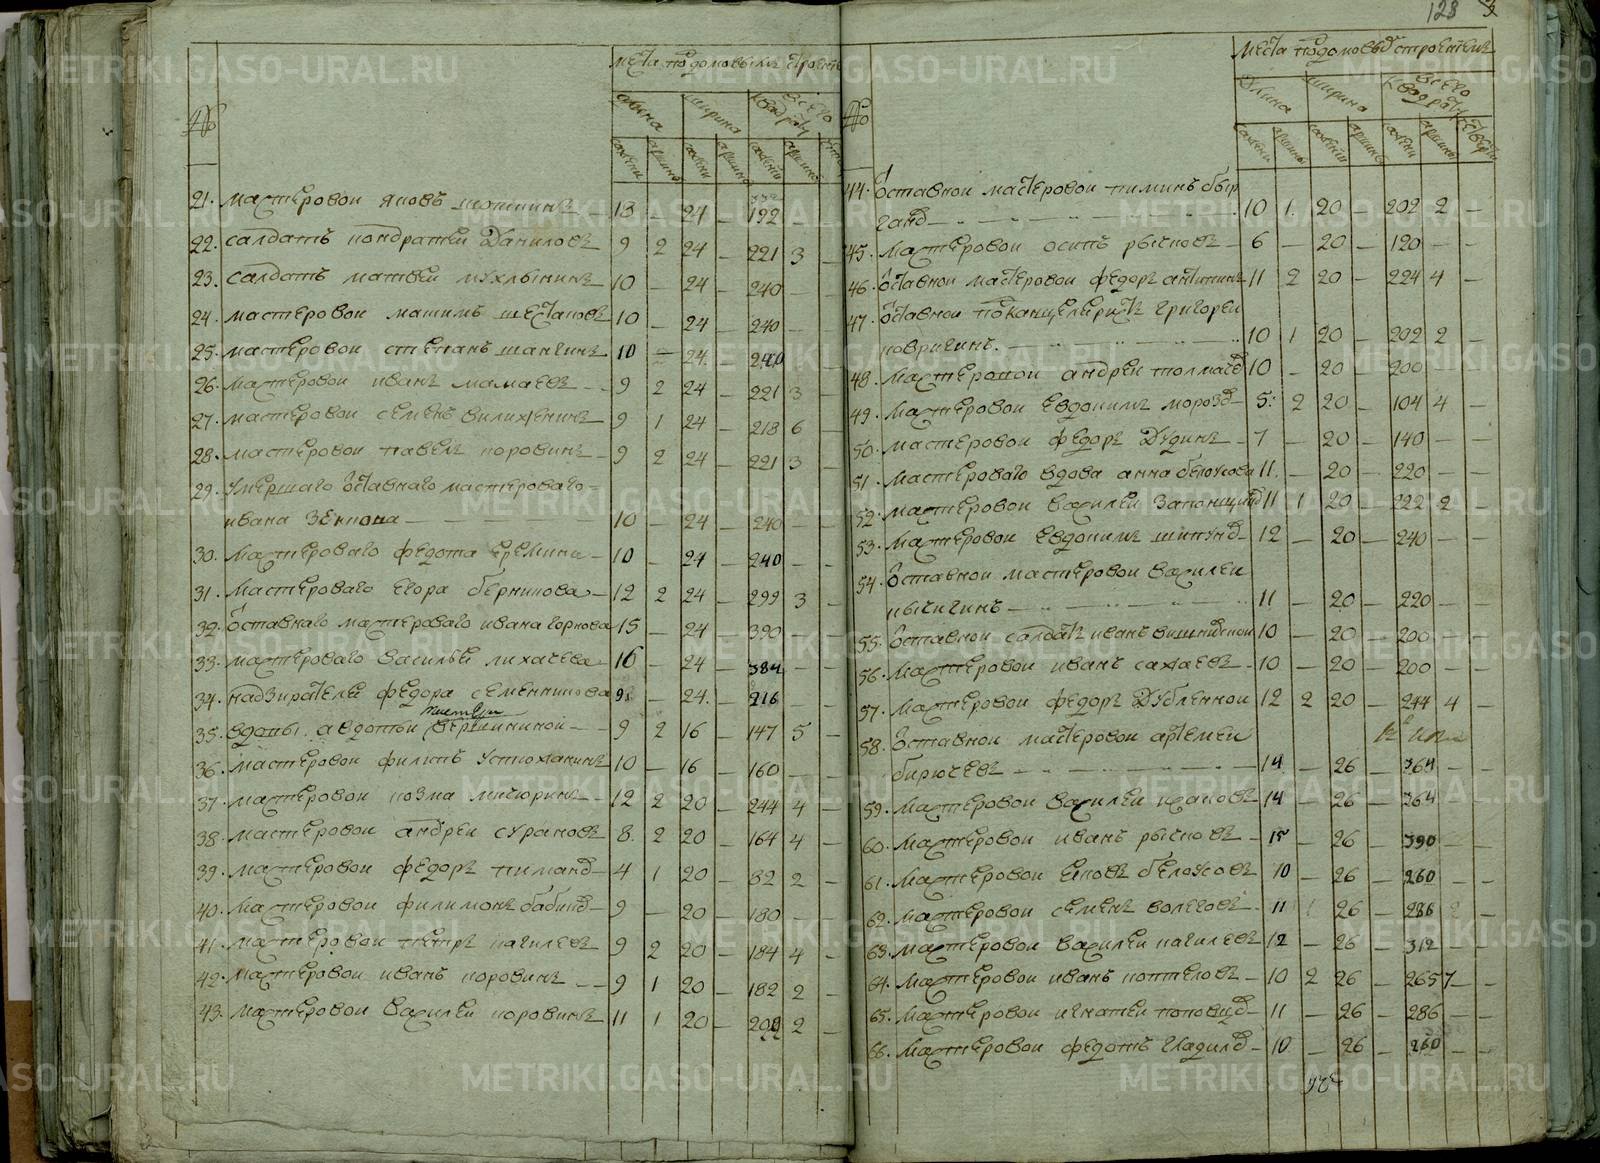 128
места подомовымъ строен
длина ширина всего квадрату
сажени аршины сажени аршины сажени аршины
№
21. мастеровои яковъ 13 - 24 - 192 -
22. салдатъ кондратеи Даниловъ 9 2 24 - 221 3 -
23. салдатъ матвеи мухлынинъ 10 - 24 - 240 - -
24. мастеровои макимъ шестаковъ 10 - 24 - 240 - -
25. мастеровои степанъ шангинъ 10 - 24. - 240
26. мастеровои иванъ мамаевъ - - 9 2 24 - 221 3 -
27. мастеровои семенъ вилиженинъ 9 1 24 - 218 6 -
28. мастеровои павелъ коровинъ - 9 2 24 - 221 3 -
29. умершаго отставнаго мастероваго -
ивана 10 - 24 - 240 - -
30. мастероваго федота еремина - 10 24 - 240 - -
31. мастероваго егора берникова - 12 2 24 - 299 3 -
32. отставнаго мастероваго ивана горнова 15 - 24 - 390 - -
33. мастероваго василья лихачева 16 - 24 - 384 - -
34. надзирателя федора семенникова 9. - 24. - 216 - -
35. вдовы авдотьи вершининои - - 9 2 16 - 147 5 -
36. мастеровои филипъ устюжанинъ 10 - 16 - 160 - -
37. мастеровои козма мичюринъ - 12 2 20 - 244 4 -
38. мастеровои андреи сурановъ 8. 2 20 - 164 4 -
39. мастеровои федоръ 4 1 20 - 82 2 -
40. мастеровои филимонъ бабинъ - 9 - 20 - 180 - -
41. мастеровои петръ кагилевъ 9 2 20 - 184 4 -
42. мастеровои иванъ коровинъ - - 9 1 20 - 182 2 -
43. мастеровои василеи коровинъ 11 1 20 - 2 -
места подомовымъ строениемъ
длина ширина всего квадрату
сажени аршины сажени аршины сажени аршины четверти
№
44. отставнои мастеровои
10 1. 20 - 202 2 -
45. мастеровои осипъ рычковъ - 6 - 20 - 120 - -
46. отставнои мастеровои федоръ антипинъ 11 2 20 - 224 4 -
47. отставнои подканцеляристъ григореи
ковригинъ. - 10 1 20 - 202 2 -
48. мастеровои андреи толмачевъ 10 - 20 - 200 - -
49. мастеровои евдокимъ морозовъ - 5: 2 20 - 104 4 -
50. мастеровои федоръ Дудинъ - 7 - 20 - 140 - -
51. мастероваго вдова анна белоусова 11. - 20 - 220 - -
52. мастеровои василеи запонщиковъ 11 1 20 - 222 2 -
53. мастеровои евдокимъ шипуновъ - 12 - 20 - 240 - -
54. отставнои мастеровои василеи
кычигинъ - 11 - 20 - 220 - -
55. отставнои салдатъ иванъ 10 - 20 - 200 - -
56. мастеровои иванъ сажаевъ - 10 - 20 - 200 - -
57. мастеровои федоръ Дубленнои 12 2 20 - 244 4 -
58. отставнои мастеровои артемеи
бирючевъ - 14 - 26 - 364 - -
59. мастеровои василеи исаковъ - 14 - 26 - 364 - -
60. мастеровои иванъ рычковъ - 15 - 26 - 390 - -
61. мастеровои яковъ белоусовъ 10 - 26 - 260 - -
62. мастеровои семенъ волеговъ - 11 26 - 286 -
63. мастеровои василеи кагилевъ - 12 - 26 - 312 - -
64. мастеровои иванъ коптеловъ - 10 2 26 - 265 7 -
65. мастеровои игнатеи поповъ - 11 - 26 - 286 - -
66. мастеровои федотъ гладиловъ - 10 - 26 - 260 - -